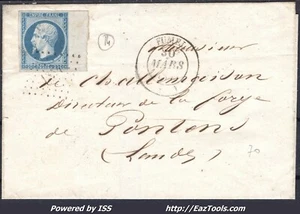 EMPIRE FRANC.
FUMEL
30
MARS
Monsieur
Directeur de la forge
de Pontens
(Landes)
70
Powered by ISS
http://EazTools.com